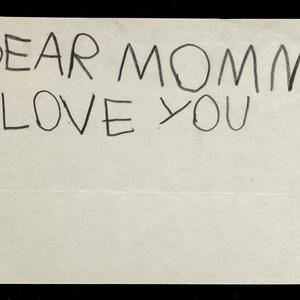 DEAR MOMM
LOVE YOU